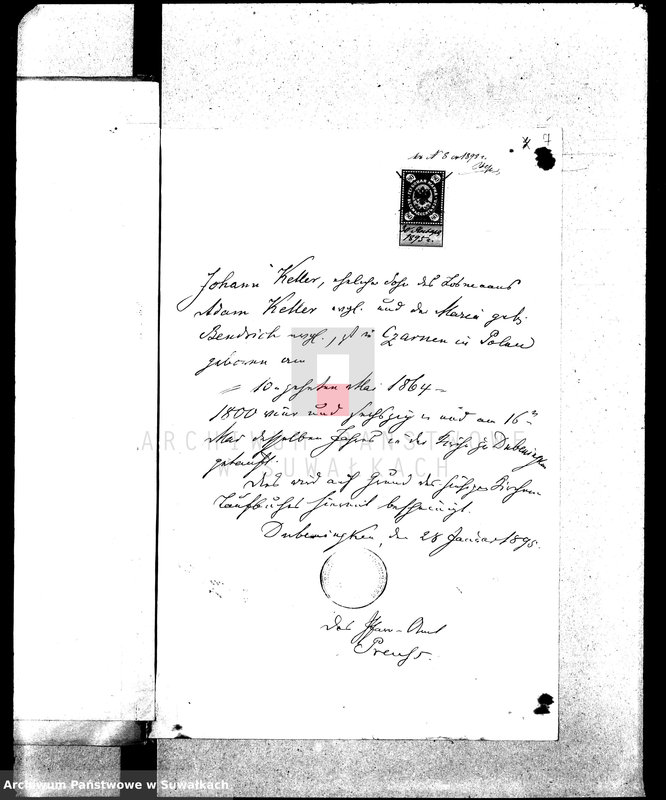 7
1895 г.
Johann Keller, ehelicher Sohn des Losmanns
Adam Keller evgl. und der Maria geb.
Bendrich evgl., ist in Czarnen in Polen
geboren am
= 10 zehnten Mai 1864 =
1800 vier und sechszig und am 16ten
Mai desselben Jahres in der Kirche zu Dubeningken
getauft.
Dies wird auf Grund des hiesigen Kirchen-
Taufbuches hiermit bescheinigt.
Dubeningken, den 28 Januar 1895.
Das Pfarr-Amt
Preuss.
ARCHIWUM PAŃSTWOWE
W SUWAŁKACH
Archiwum Państwowe w Suwałkach